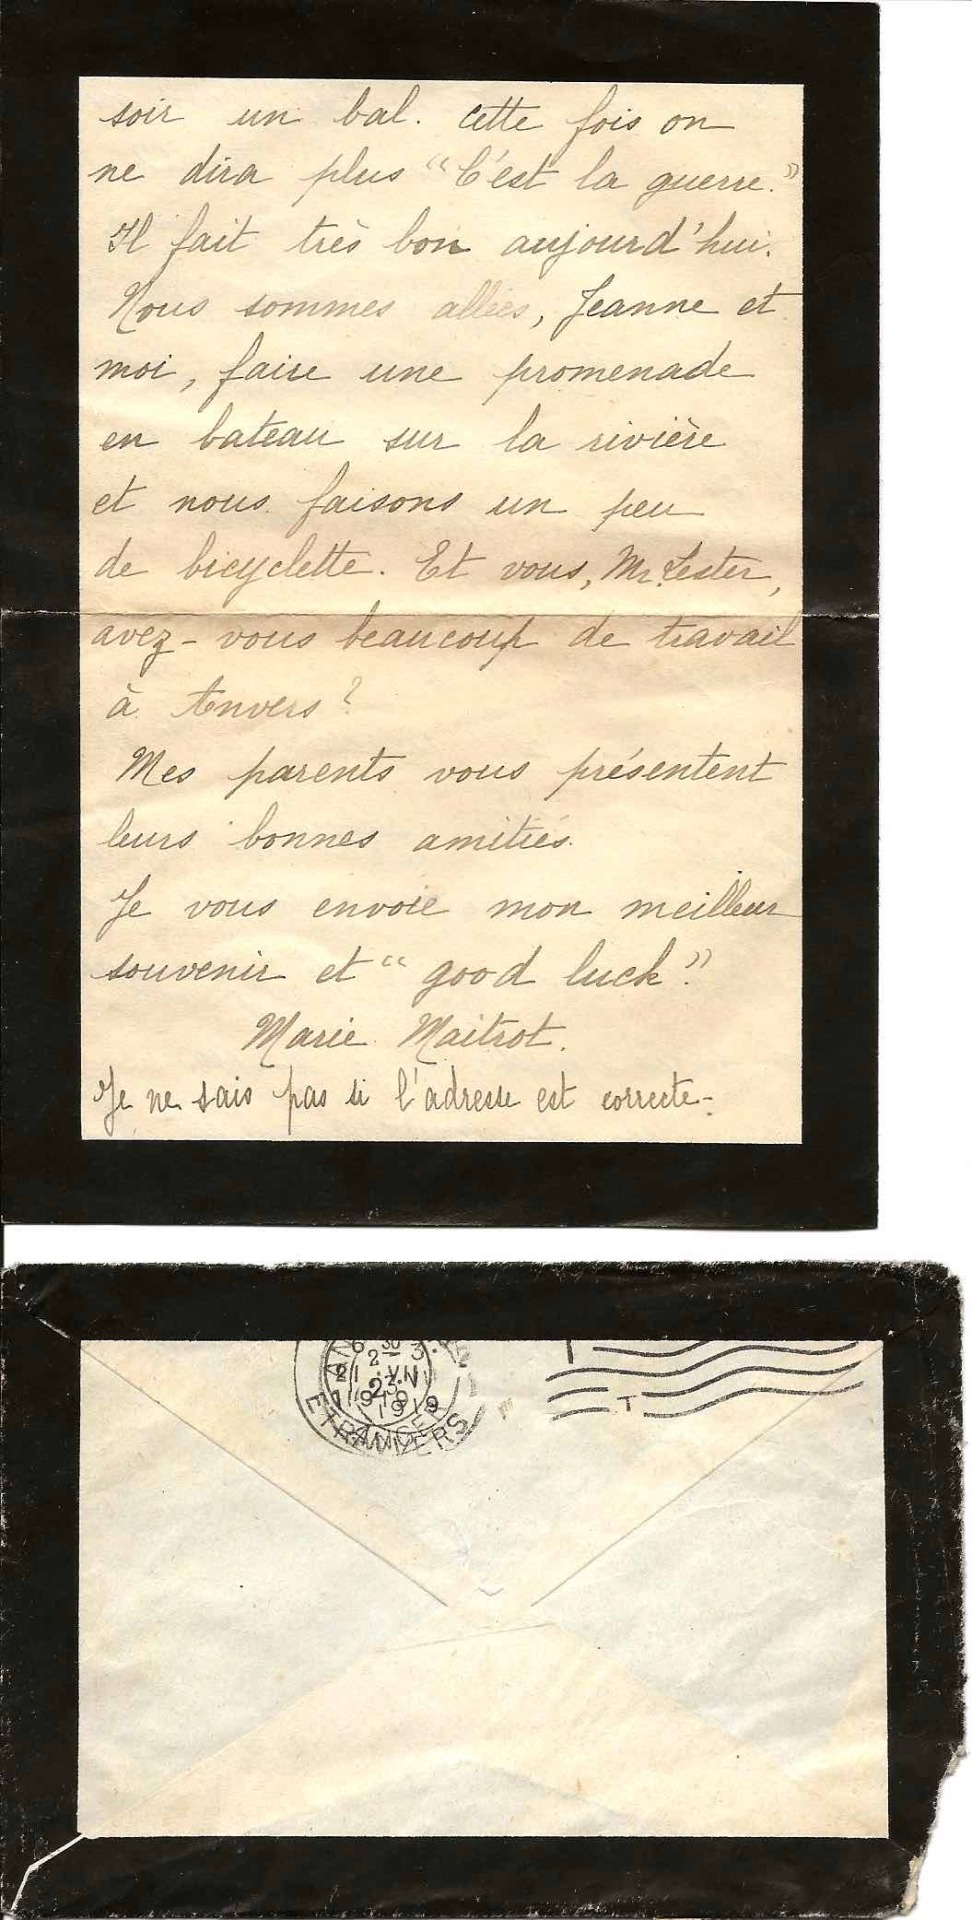 soir un bal. Cette fois on
ne dira plus "C'est la guerre."
Il fait très bon aujourd'hui.
Nous sommes allées, Jeanne et
moi, faire une promenade
en bateau sur la rivière
et nous faisons un peu
de bicyclette. Et vous, Mr. Lester,
avez-vous beaucoup de travail
à Anvers?
Mes parents vous présentent
leurs bonnes amitiés.
Je vous envoie mon meilleur
souvenir et "good luck".
Marie Maitrot.
Je ne sais pas si l'adresse est correcte-
1919
T